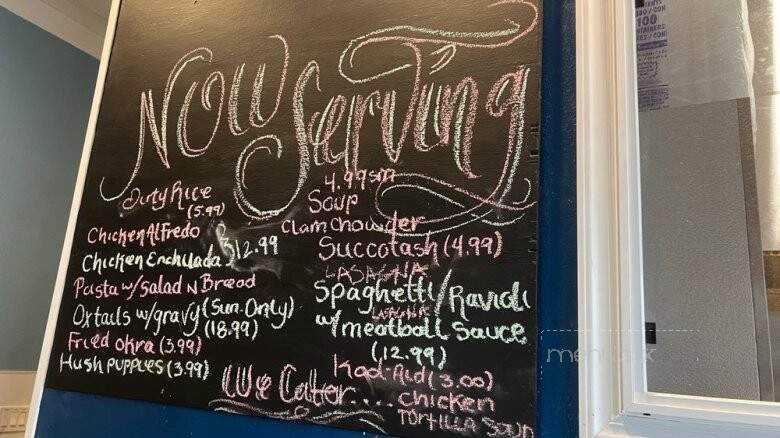 Now Serving
Dirty Rice
(5.99)
Chicken Alfredo
Chicken Enchilada
$12.99
Pasta w/ Salad N Bread
Oxtails w/gravy (Sun. Only)
(18.99)
Fried Okra (3.99)
Hush puppies (3.99)
4.99 sm
Soup
Clam Chowder
Succotash (4.99)
LASAGNA
Spaghetti/Ravioli
LASAGNA
w/ meatball sauce
(12.99)
Kool-Aid (3.00)
We Cater....
chicken
TORTILLA SOUP
100